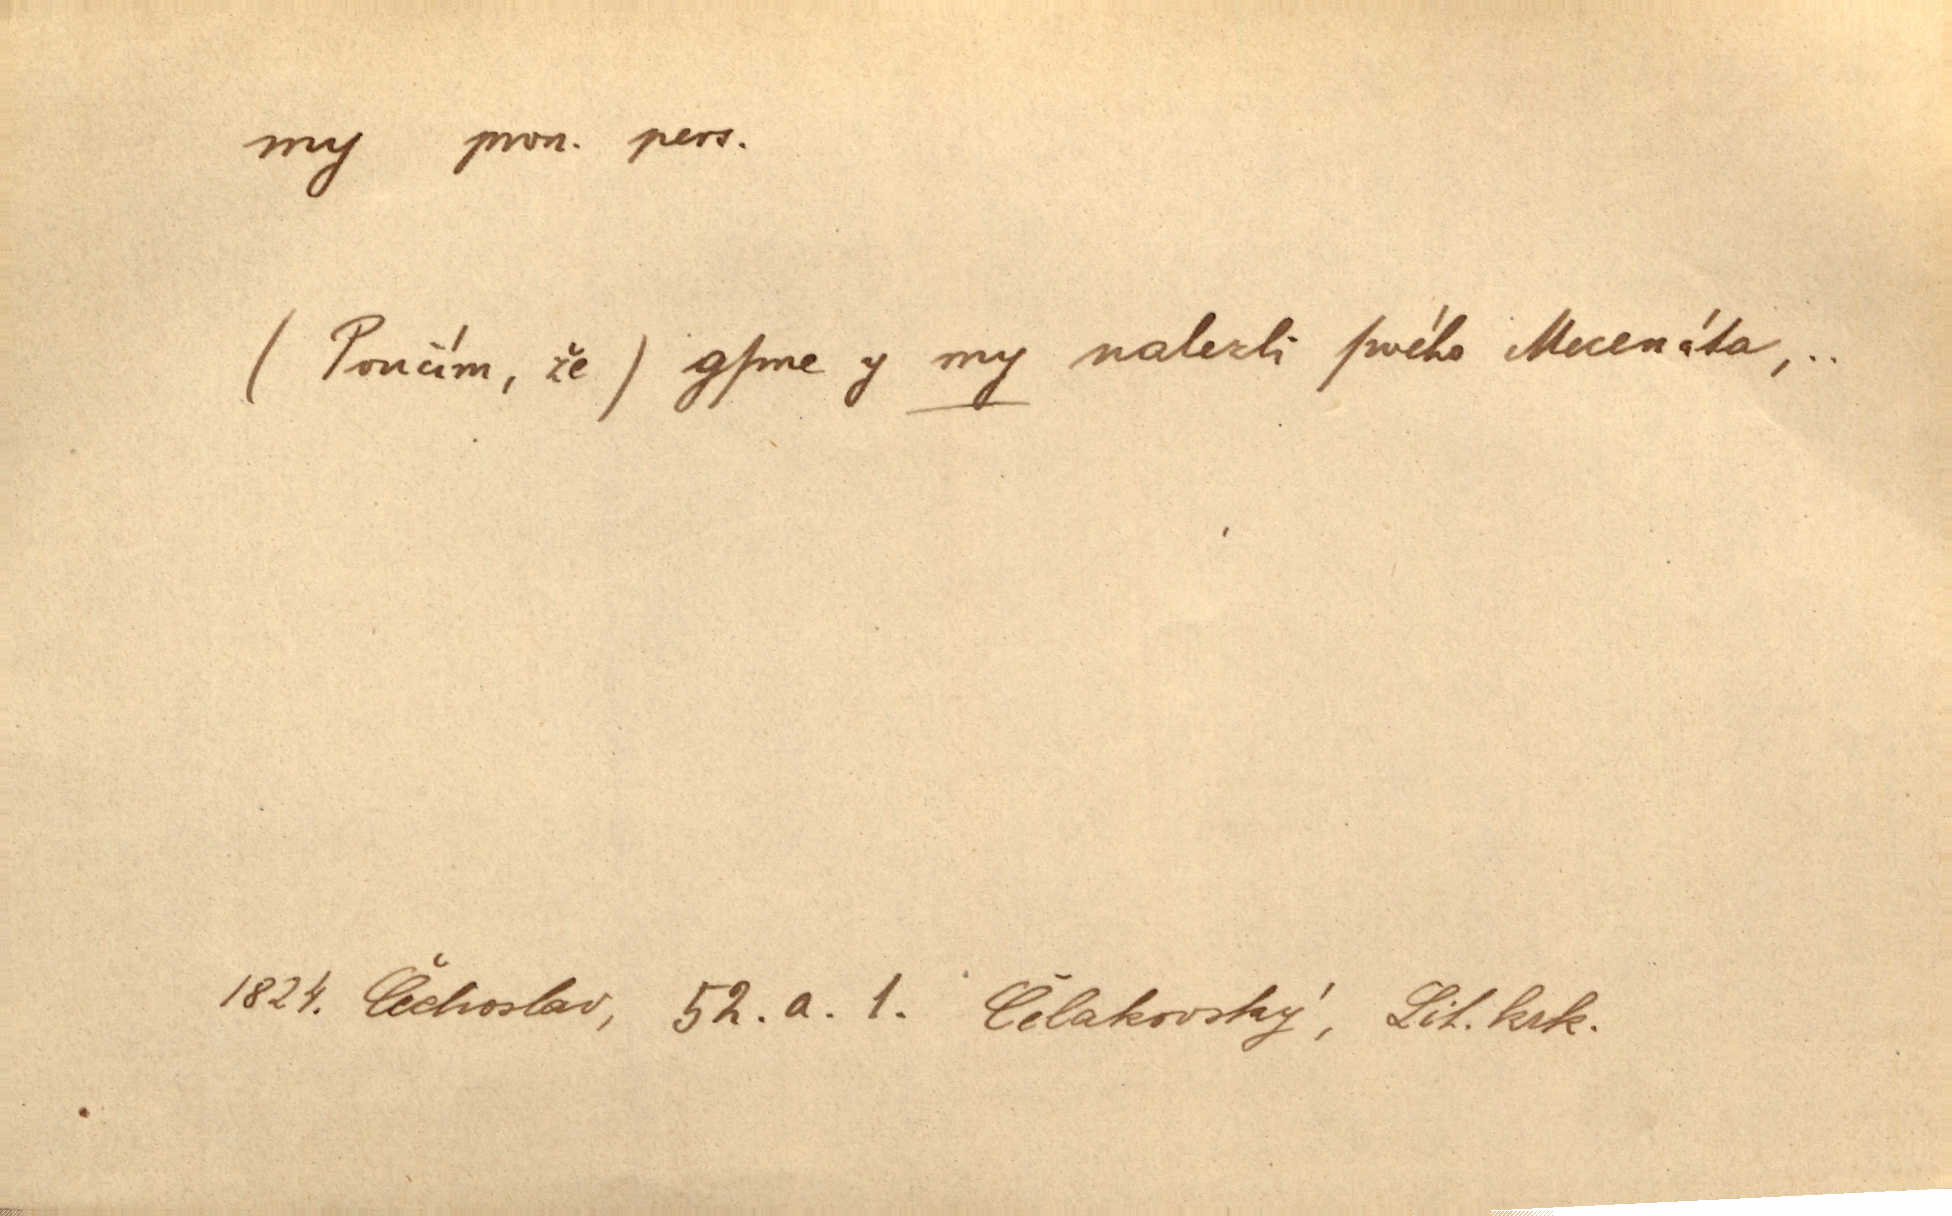 my pron. pers.
( Poručím, že ) gſme y my nalezli ſvého Mecenáta, ..
1824. Čechoslav, 52. a. 1. Čelakovský, Lit. krk.